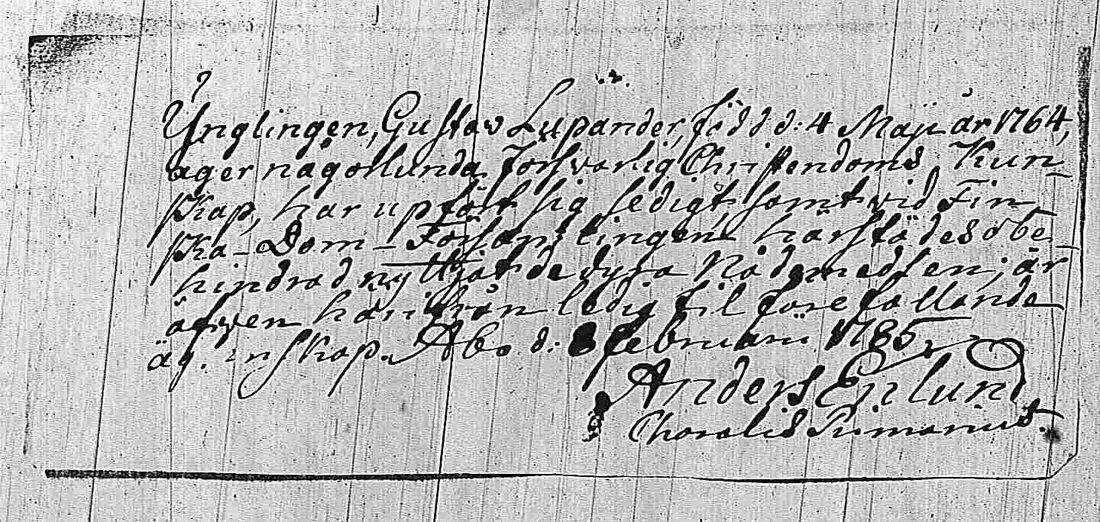 Ynglingen, Gustav Lupander, född d: 4 Maji år 1764,
äger någorlunda försvarlig Christendoms Kun-
skap, har upfört sig sedigt, samt vid Fin-
ska Dom-Församlingen härstädes obe-
hindrad nyttjat de dyra Nådemedlen; är
äfwen härifrån ledig til förefallande
ägtenskap. Åbo d: 8 februarii 1785
Anders Enlund
Choralis Primarius.